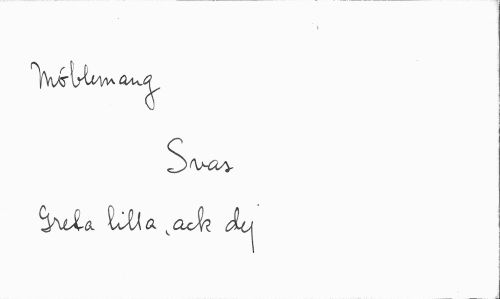 Möblemang
Svas
Greta lilla, ack dej